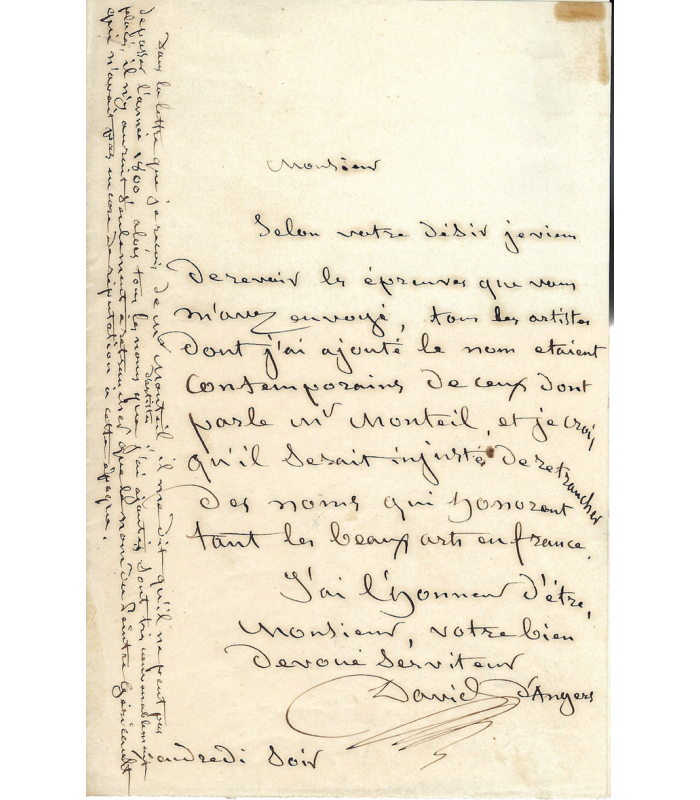 Monsieur
Selon votre désir je viens
de revoir les épreuves que vous
m'avez envoyé, tous les artistes
dont j'ai ajouté le nom etaient
contemporains de ceux dont
parle Mr Monteil, et je crois
qu'il serait injuste de retrancher
des noms qui honorent
tant les beaux arts en france.
J'ai l'honneur d'être,
Monsieur, votre bien
devoué serviteur
David d'Angers
vendredi soir
Dans la lettre que je reçois de Mr Monteil il me dit qu'il ne peut pas
depasser l'année 1800 alors tous les noms d'artistes que j'ai ajoutés sont très convenablement
placés, il n'y aurait seulement à retrancher que le nom du peintre Géricault
qui n'avait pas encore de réputation à cette époque.